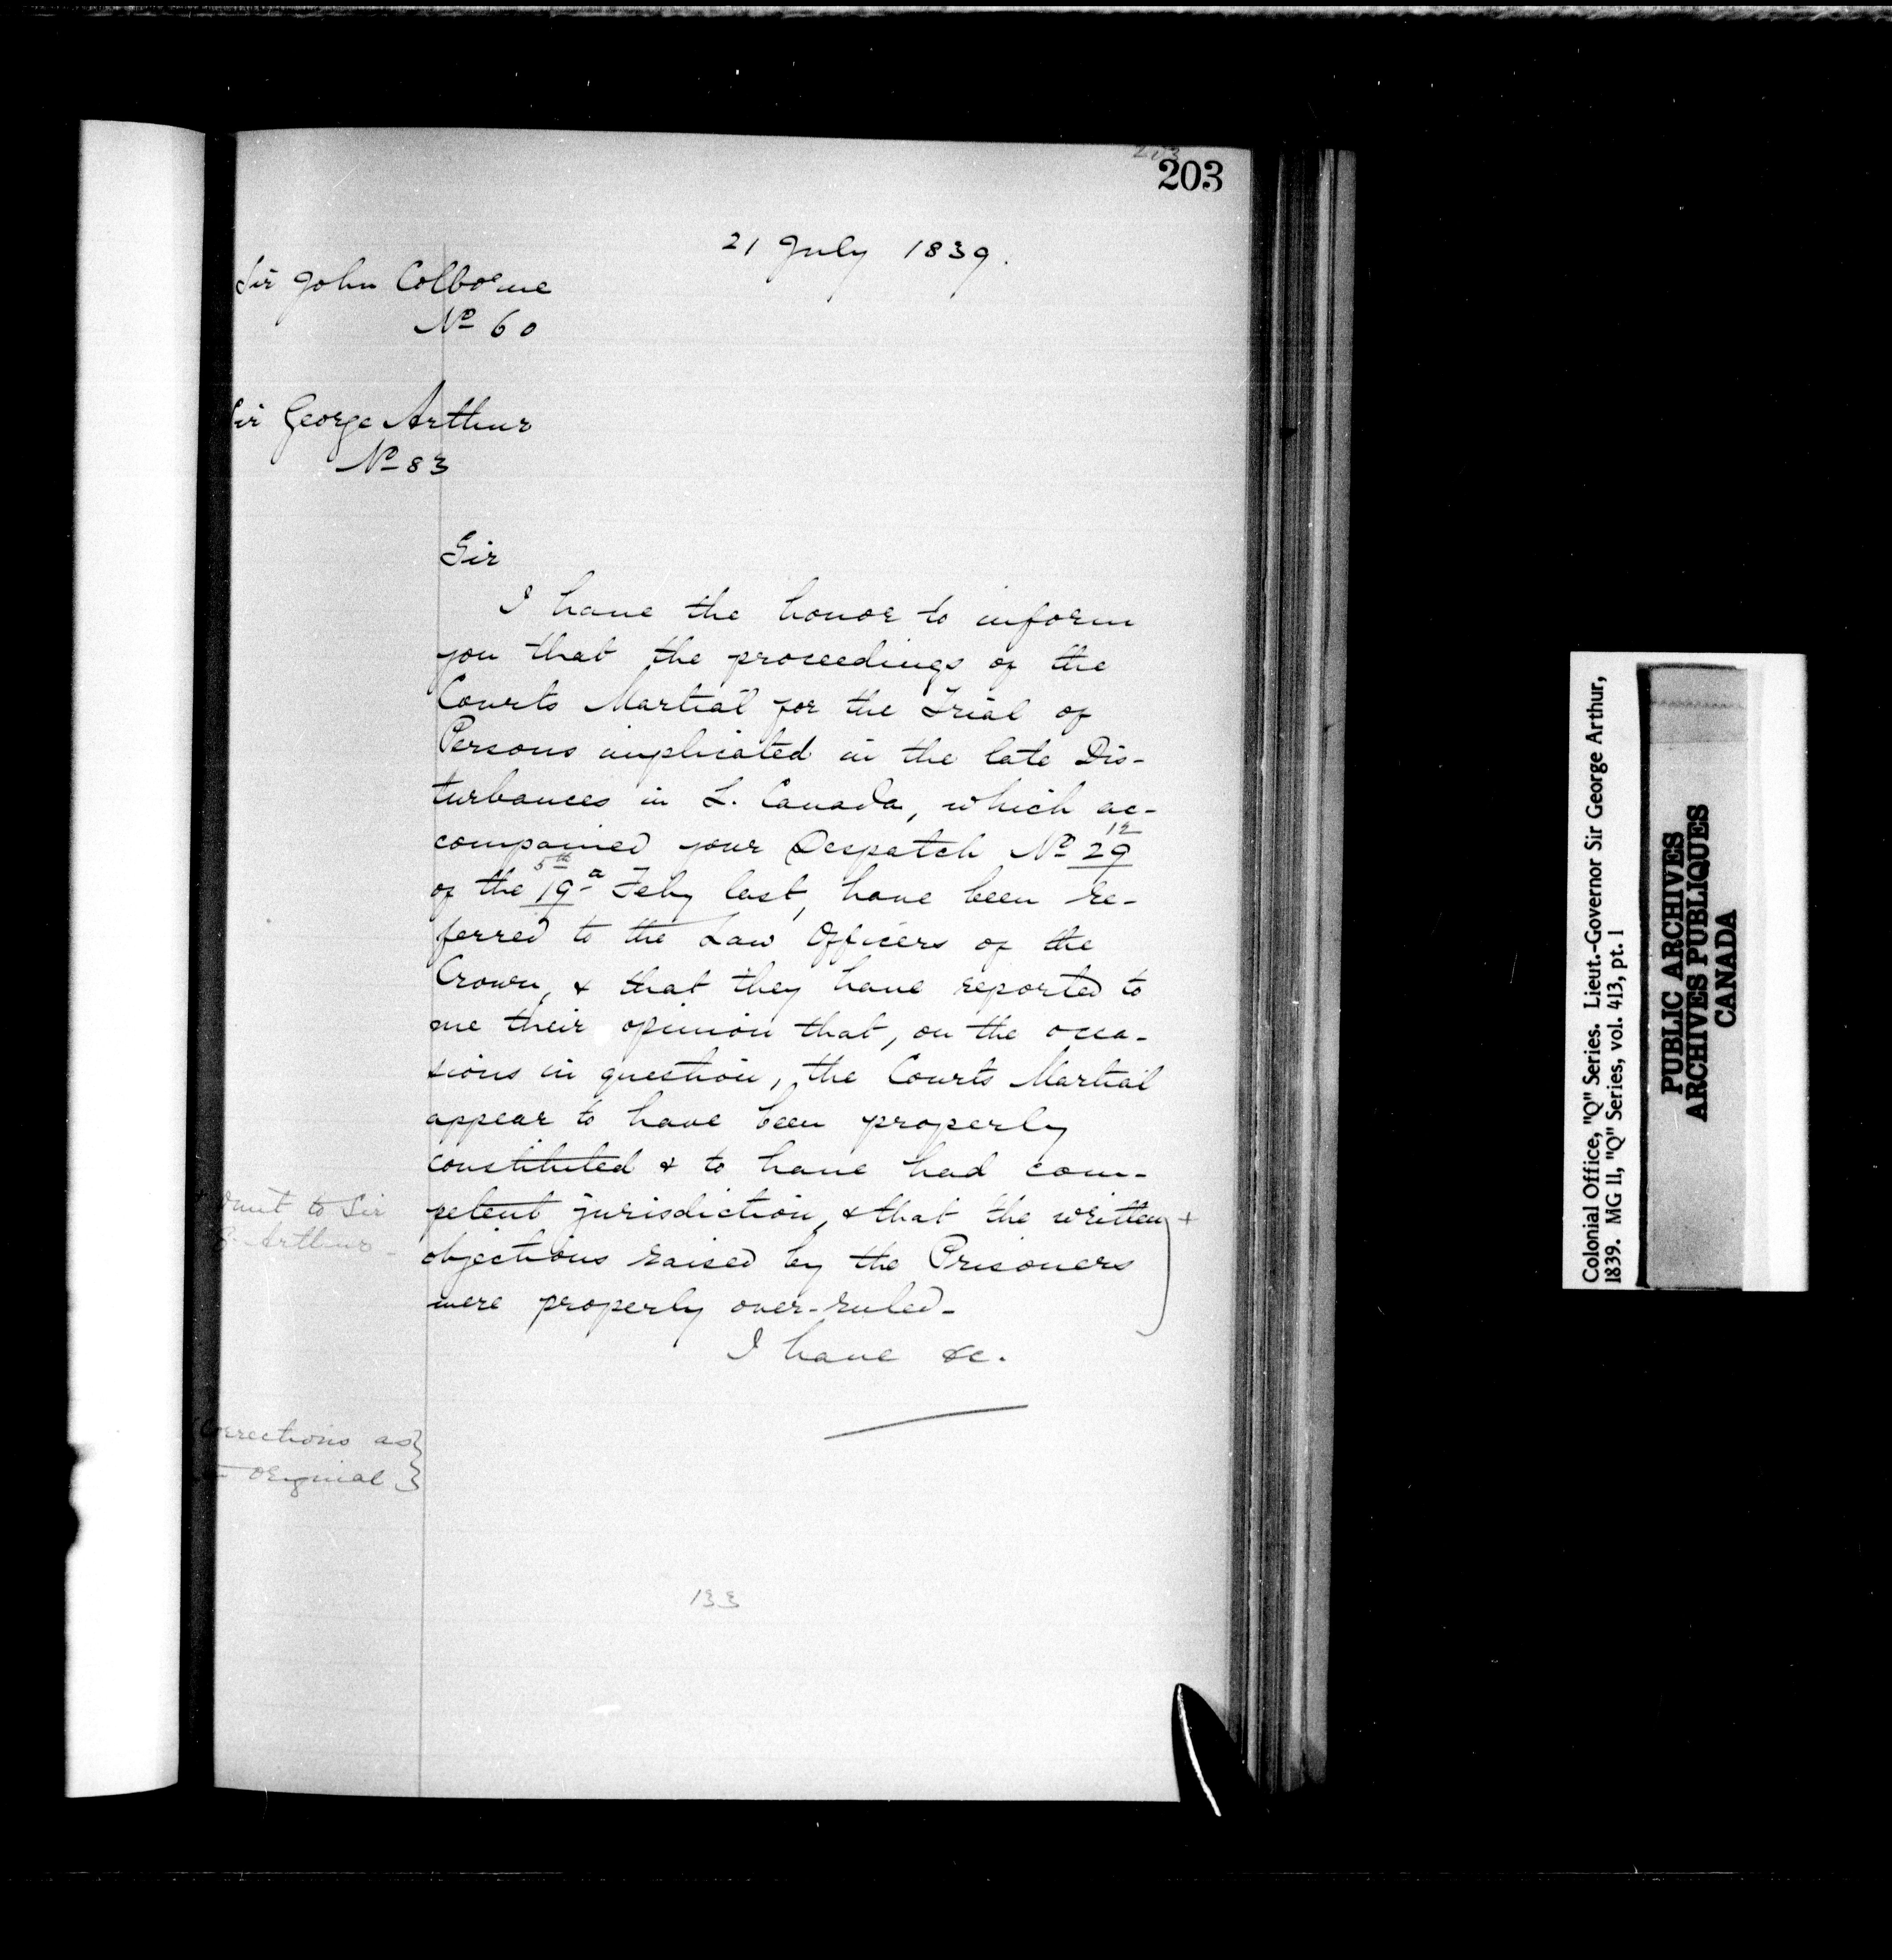 203
203
21 July 1839.
Sir John Colborne
No 60
Sir George Arthur
No 83
Sir
I have the honor to inform
you that the proceedings of the
Courts Martial for the Trial of
Persons implicated in the late Dis-
turbances in L. Canada, which ac-
12
companied your Despatch No 29
5th
of the 19 a Feby last, have been re-
ferred to the Law Officers of the
Crown, & that they have reported to
me their opinion that, on the occa-
sions in question, the Courts Martial
appear to have been properly
constituted & to have had com-
petent jurisdiction, & that the written +
objections raised by the Prisoners
were properly over-ruled-
+ Omit to Sir
G. Arthur-
I have &c.
(Corrections as
in Original)
133
Colonial Office, "Q" Series. Lieut.-Governor Sir George Arthur,
1839. MG 11, "Q" Series, vol. 413, pt. 1
PUBLIC ARCHIVES
ARCHIVES PUBLIQUES
CANADA